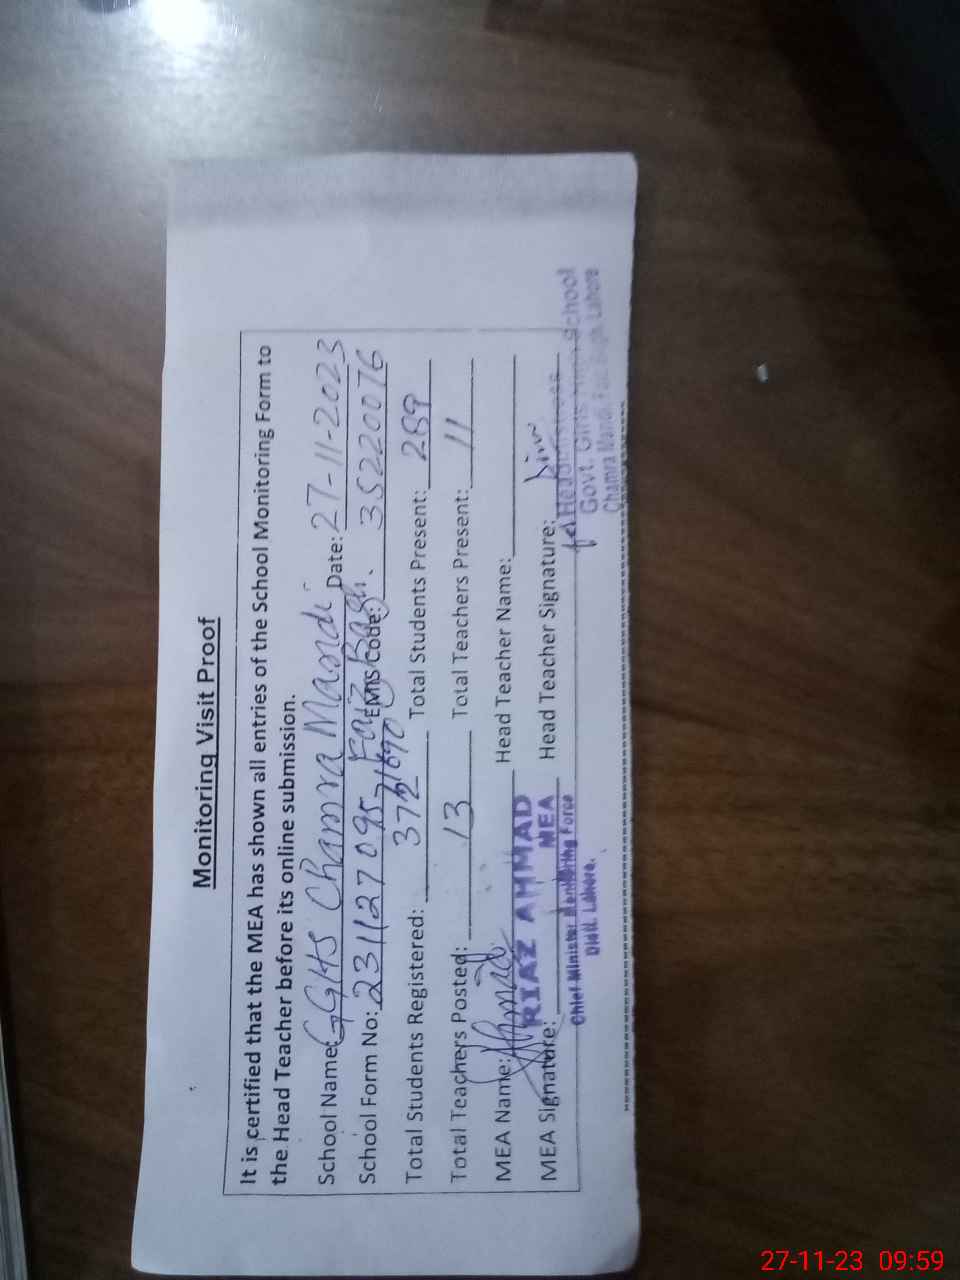 Monitoring Visit Proof
It is certified that the MEA has shown all entries of the School Monitoring Form to
the Head Teacher before its online submission.
School Name: GGHS Chamra Mandi Date: 27-11-2023
Faiz Bagh.
School Form No: 231127095 EMIS Code: 35220076
Total Students Registered: 372 Total Students Present: 289
Total Teachers Posted: 13 Total Teachers Present: 11
MEA Name: Head Teacher Name:
RIAZ AHMAD
MEA
MEA Signature: Head Teacher Signature:
Chief Minister Monitoring Force
Distt. Lahore.
Headmistress
Govt. Girls High School
Chamra Mandi, Faiz Bagh, Lahore
27-11-23 09:59